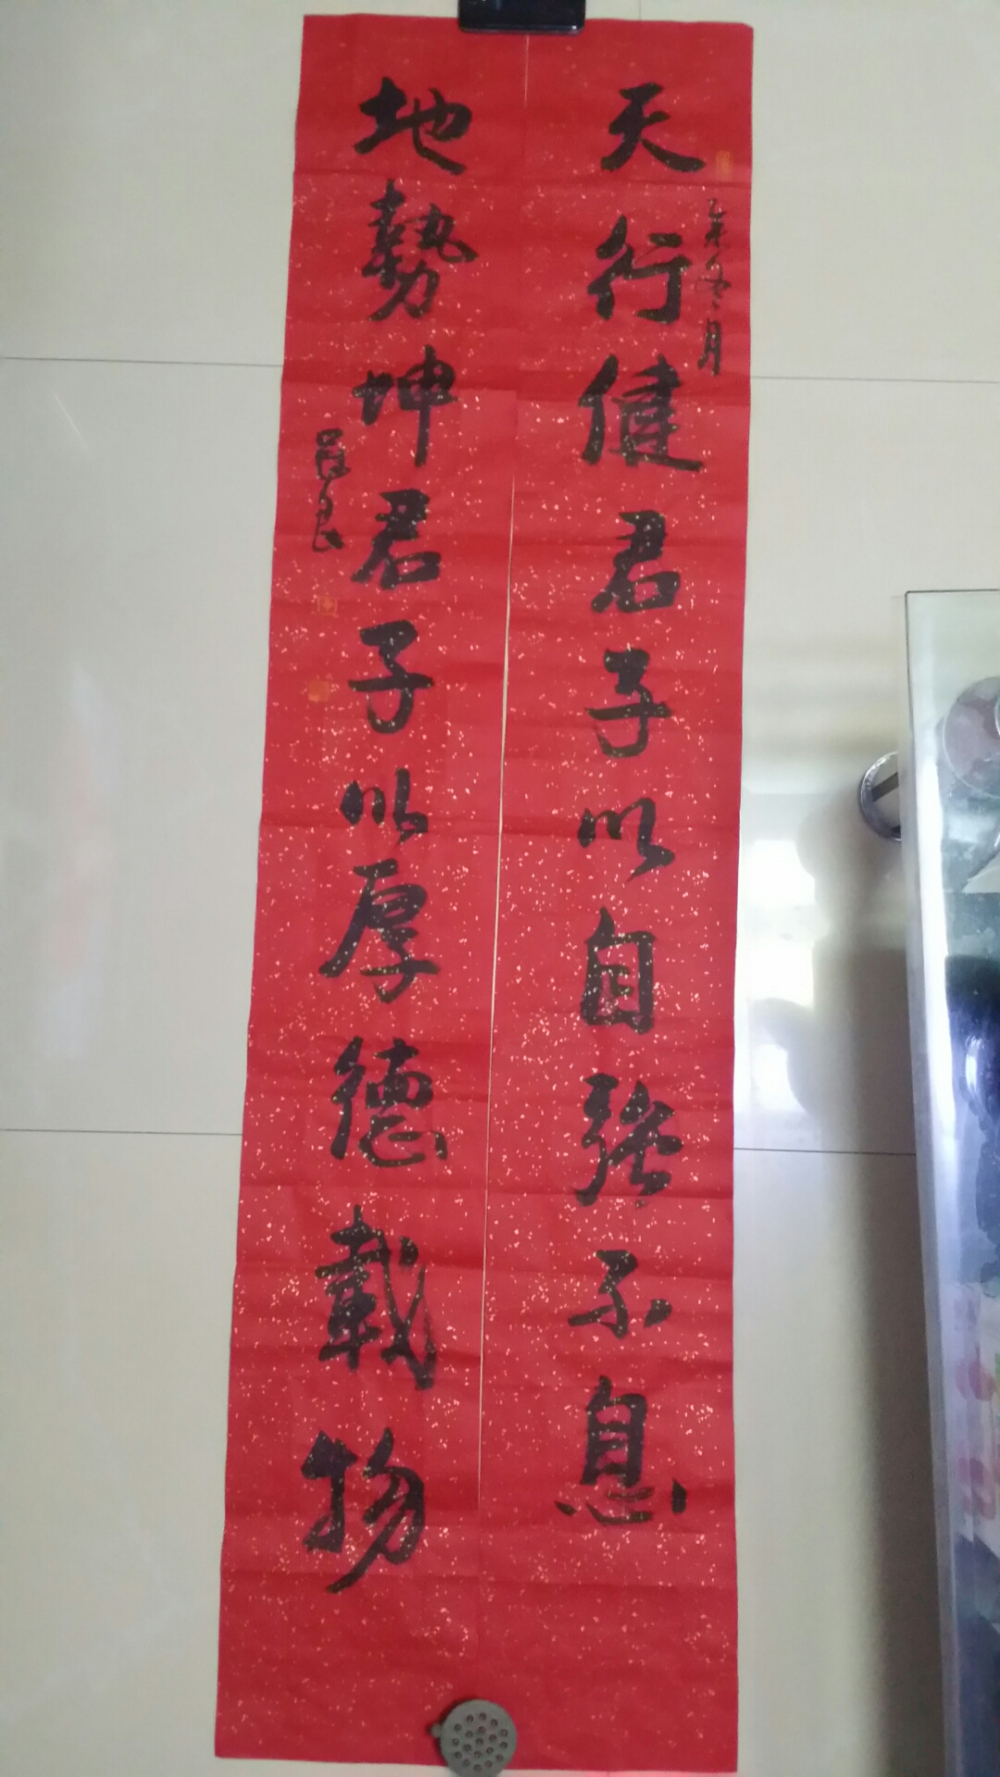 天行健君子以自強不息
冬月
地勢坤君子以厚德載物